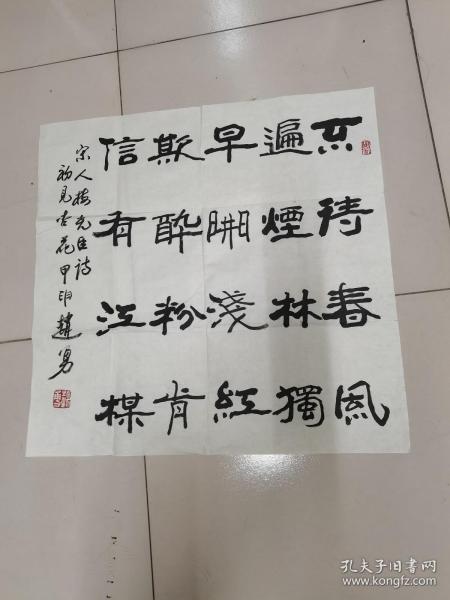 不待春風
遍煙林獨
早開淺紅
欺酔粉肯
信有江楳
宋人梅尧臣诗
初見杏花甲申
孔夫子旧书网
www.kongfz.com